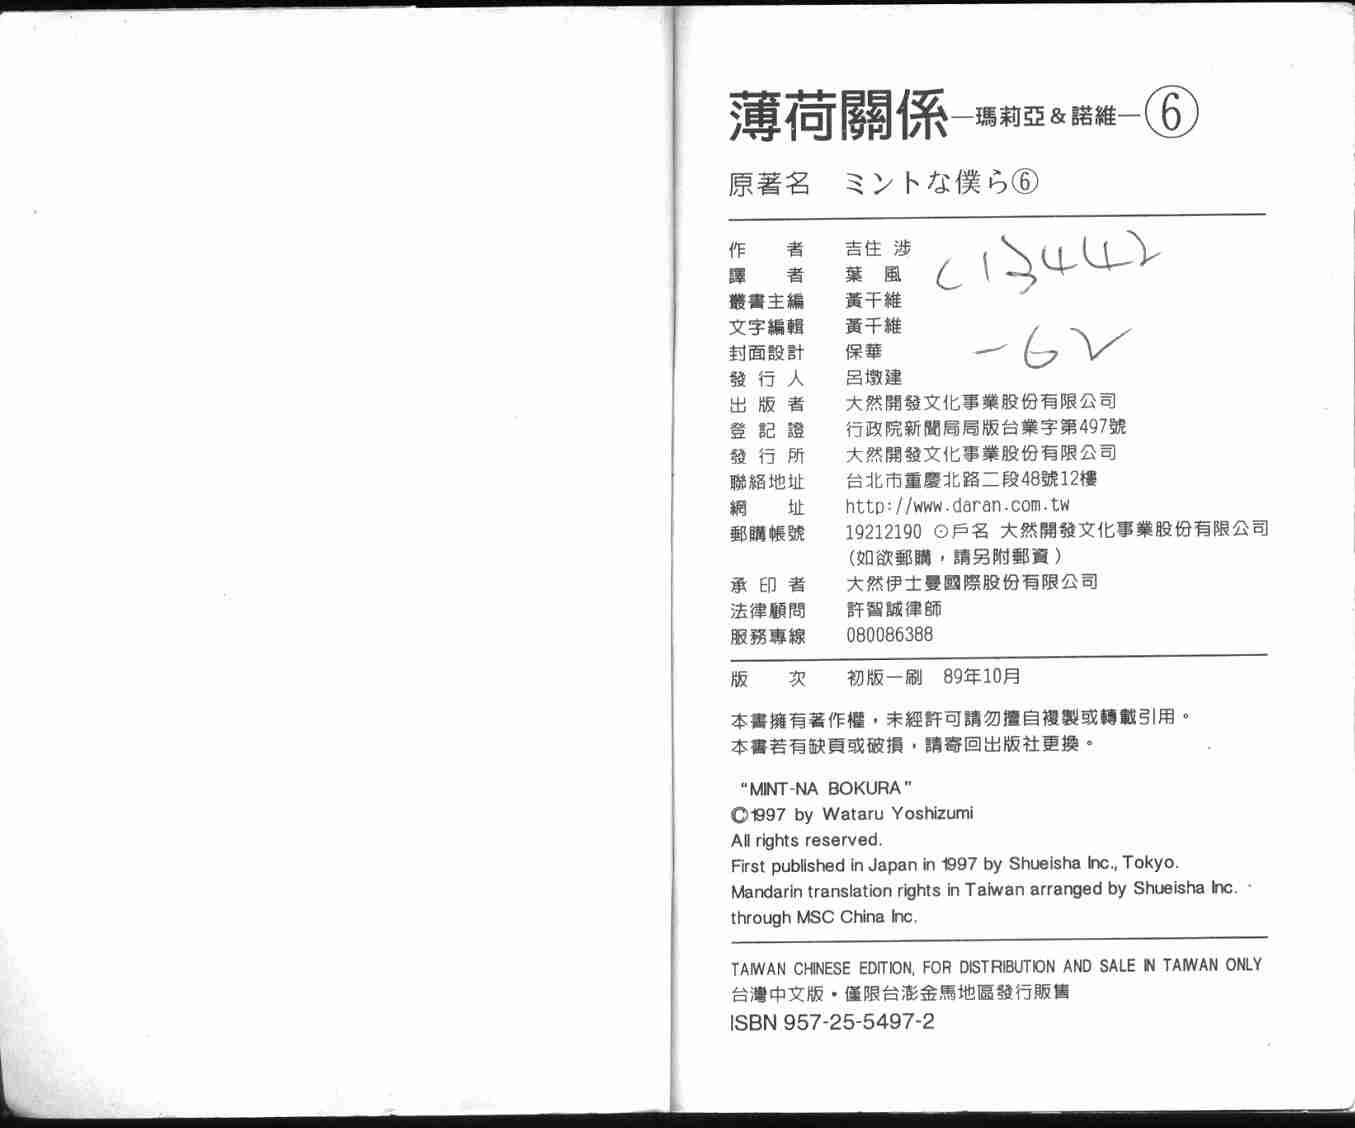 薄荷關係—瑪莉亞&諾維—⑥
原著名 ミントな僕ら⑥
作者 吉住 涉
譯者 葉 風
叢書主編 黃千維
文字編輯 黃千維
封面設計 保華
發行人 呂墩建
出版者 大然開發文化事業股份有限公司
登記證 行政院新聞局局版台業字第497號
發行所 大然開發文化事業股份有限公司
聯絡地址 台北市重慶北路二段48號12樓
網址 http://www.daran.com.tw
郵購帳號 19212190 ⊙戶名 大然開發文化事業股份有限公司
(如欲郵購，請另附郵資)
承印者 大然伊士曼國際股份有限公司
法律顧問 許智誠律師
服務專線 080086388
C13442
-62
版次 初版一刷 89年10月
本書擁有著作權，未經許可請勿擅自複製或轉載引用。
本書若有缺頁或破損，請寄回出版社更換。
“MINT-NA BOKURA”
©1997 by Wataru Yoshizumi
All rights reserved.
First published in Japan in 1997 by Shueisha Inc., Tokyo.
Mandarin translation rights in Taiwan arranged by Shueisha Inc.
through MSC China Inc.
TAIWAN CHINESE EDITION, FOR DISTRIBUTION AND SALE IN TAIWAN ONLY
台灣中文版•僅限台澎金馬地區發行販售
ISBN 957-25-5497-2